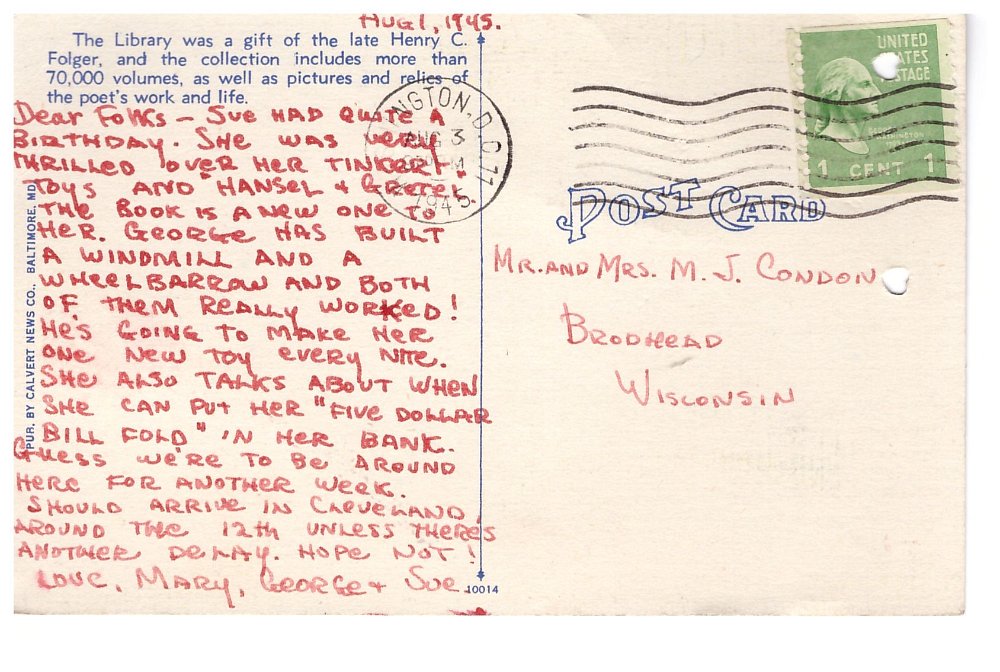 Aug 1, 1945.
The Library was a gift of the late Henry C.
Folger, and the collection includes more than
70,000 volumes, as well as pictures and relics of
the poet's work and life.
Dear Folks – Sue had quite a
birthday. She was very
thrilled over her Tinker
Toys and Hansel + Gretel.
The book is a new one to
her. George has built
a windmill and a
wheelbarrow and both
of them really worked!
He's going to make her
one new toy every nite.
She also talks about when
she can put her "five dollar
bill fold" in her bank.
Guess we're to be around
here for another week.
Should arrive in Cleveland
around the 12th unless there's
another delay. Hope not!
Love, Mary, George + Sue.
PUB. BY CALVERT NEWS CO., BALTIMORE, MD.
10014
NGTON, D.C. 11
AUG 3
M
1945
UNITED
STATES
POSTAGE
GEORGE
WASHINGTON
1 CENT 1
POST CARD
Mr. and Mrs. M. J. Condon
Brodhead
Wisconsin